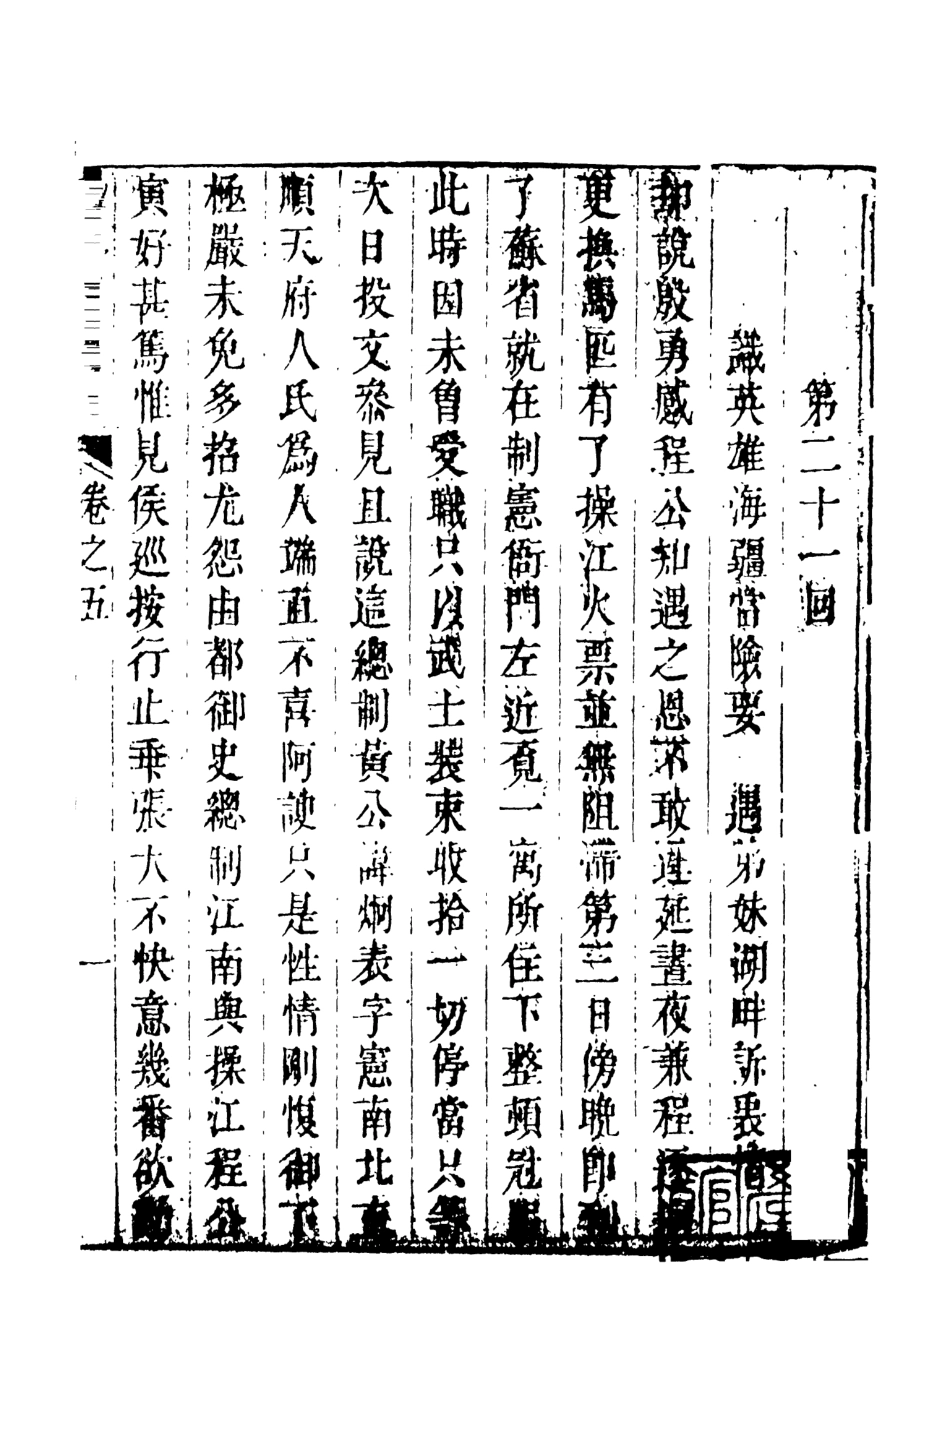 第二十一回
識英雄海疆當險要　遇弟妹湖畔訴衷情
却說殷勇感程公知遇之恩不敢遲延晝夜兼程逐程
更換馬匹有了操江火票並無阻滯第三日傍晚即到
了蘇省就在制憲衙門左近覓一寓所住下整頓冠服
此時因未曾受職只以武士裝束收拾一切停當只等
次日投文叅見且說這總制黃公諱炯表字憲南北直
順天府人氏爲人端直不喜阿諛只是性情剛愎御下
極嚴未免多招尤怨由都御史總制江南與操江程公
寅好甚篤惟見侯巡按行止乖張大不快意幾番欲動
卷之五
一